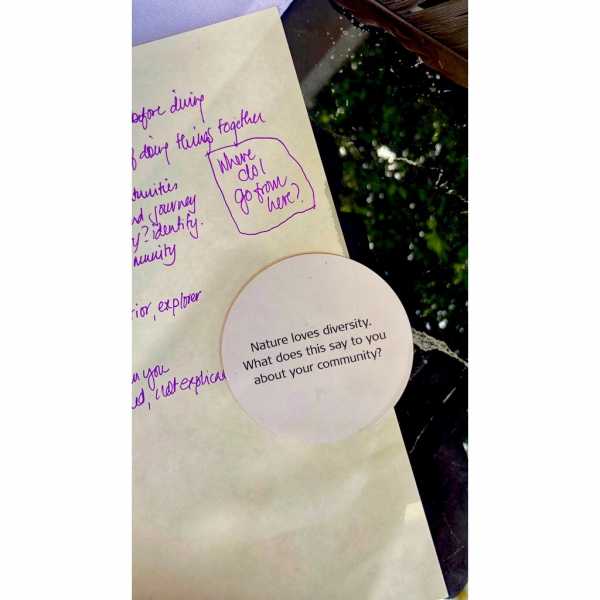 before diving
of doing things together
Where
do I
go from
here?
journey
identify.
explorer
you
not
Nature loves diversity.
What does this say to you
about your community?